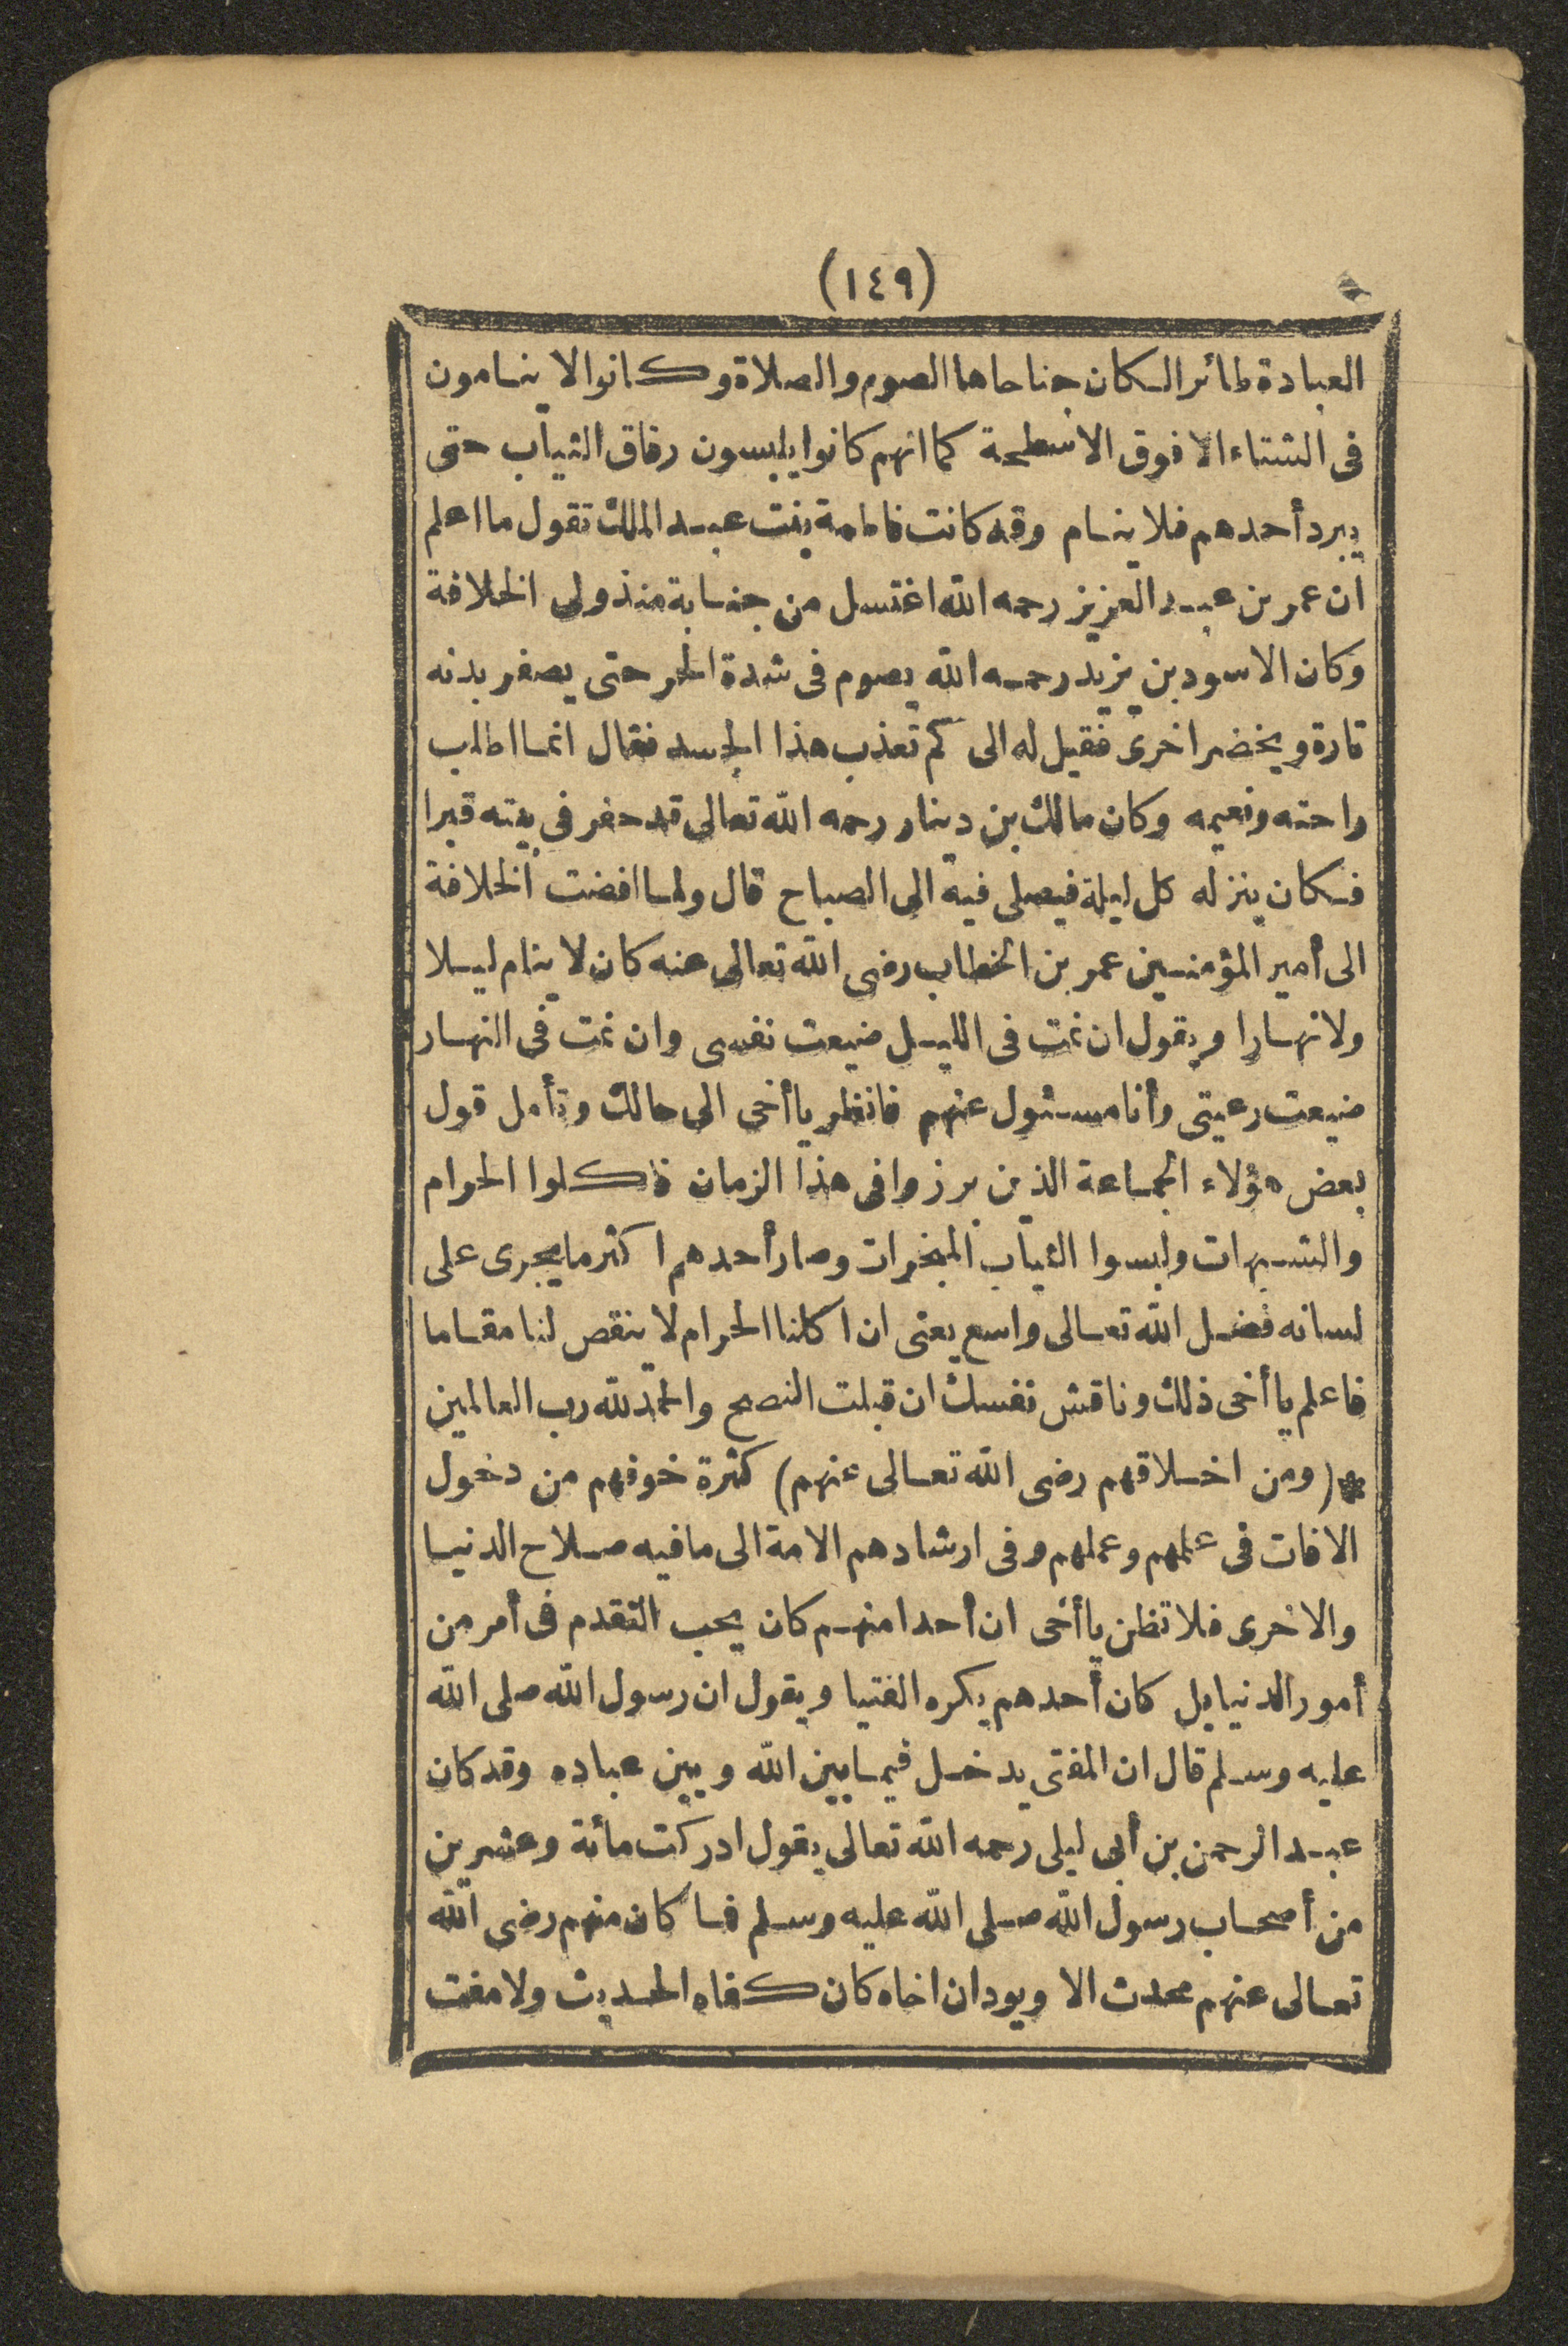 (١٤٩)
العبادة طائرا لكان جناحاها الصوم والصلاة وكانوا لا ينامون
فى الشتاء الا فوق الاسطحة كما انهم كانوا يلبسون رقاق الثياب حتى
يبرد أحدهم فلا ينام وقد كانت فاطمة بنت عبد الملك تقول ما اعلم
ان عمر بن عبد العزيز رحمه الله اغتسل من جنابة منذ ولى الخلافة
وكان الاسود بن يزيد رحمه الله يصوم فى شدة الحر حتى يصفر بدنه
تارة ويخضر اخرى فقيل له الى كم تعذب هذا الجسد فقال انما اطلب
راحته ونعيمه وكان مالك بن دينار رحمه الله تعالى قد حفر فى بيته قبرا
فكان ينزله كل ليلة فيصلى فيه الى الصباح قال ولما افضت الخلافة
الى أمير المؤمنين عمر بن الخطاب رضى الله تعالى عنه كان لا ينام ليلا
ولا نهارا ويقول ان نمت فى الليل ضيعت نفسى وان نمت فى النهار
ضيعت رعيتى وأنا مسئول عنهم فانظر يا أخى الى حالك وتأمل قول
بعض هؤلاء الجماعة الذين برزوا فى هذا الزمان فاكلوا الحرام
والشبهات ولبسوا الثياب المبخرات وصار أحدهم اكثر ما يجرى على
لسانه فضل الله تعالى واسع يعنى ان اكلنا الحرام لا ينقص لنا مقاما
فاعلم يا أخى ذلك وناقش نفسك ان قبلت النصح والحمد لله رب العالمين
* (ومن اخلاقهم رضى الله تعالى عنهم) كثرة خوفهم من دخول
الافات فى علمهم وعملهم وفى ارشادهم الامة الى ما فيه صلاح الدنيا
والاخرى فلا تظن يا أخى ان أحدا منهم كان يحب التقدم فى أمر من
أمور الدنيا بل كان أحدهم يكره الفتيا ويقول ان رسول الله صلى الله
عليه وسلم قال ان المفتى يدخل فيما بين الله وبين عباده وقد كان
عبد الرحمن بن أبى ليلى رحمه الله تعالى يقول ادركت مائة وعشرين
من أصحاب رسول الله صلى الله عليه وسلم فما كان منهم رضى الله
تعالى عنهم محدث الا ويود ان اخاه كان كفاه الحديث ولا مفت